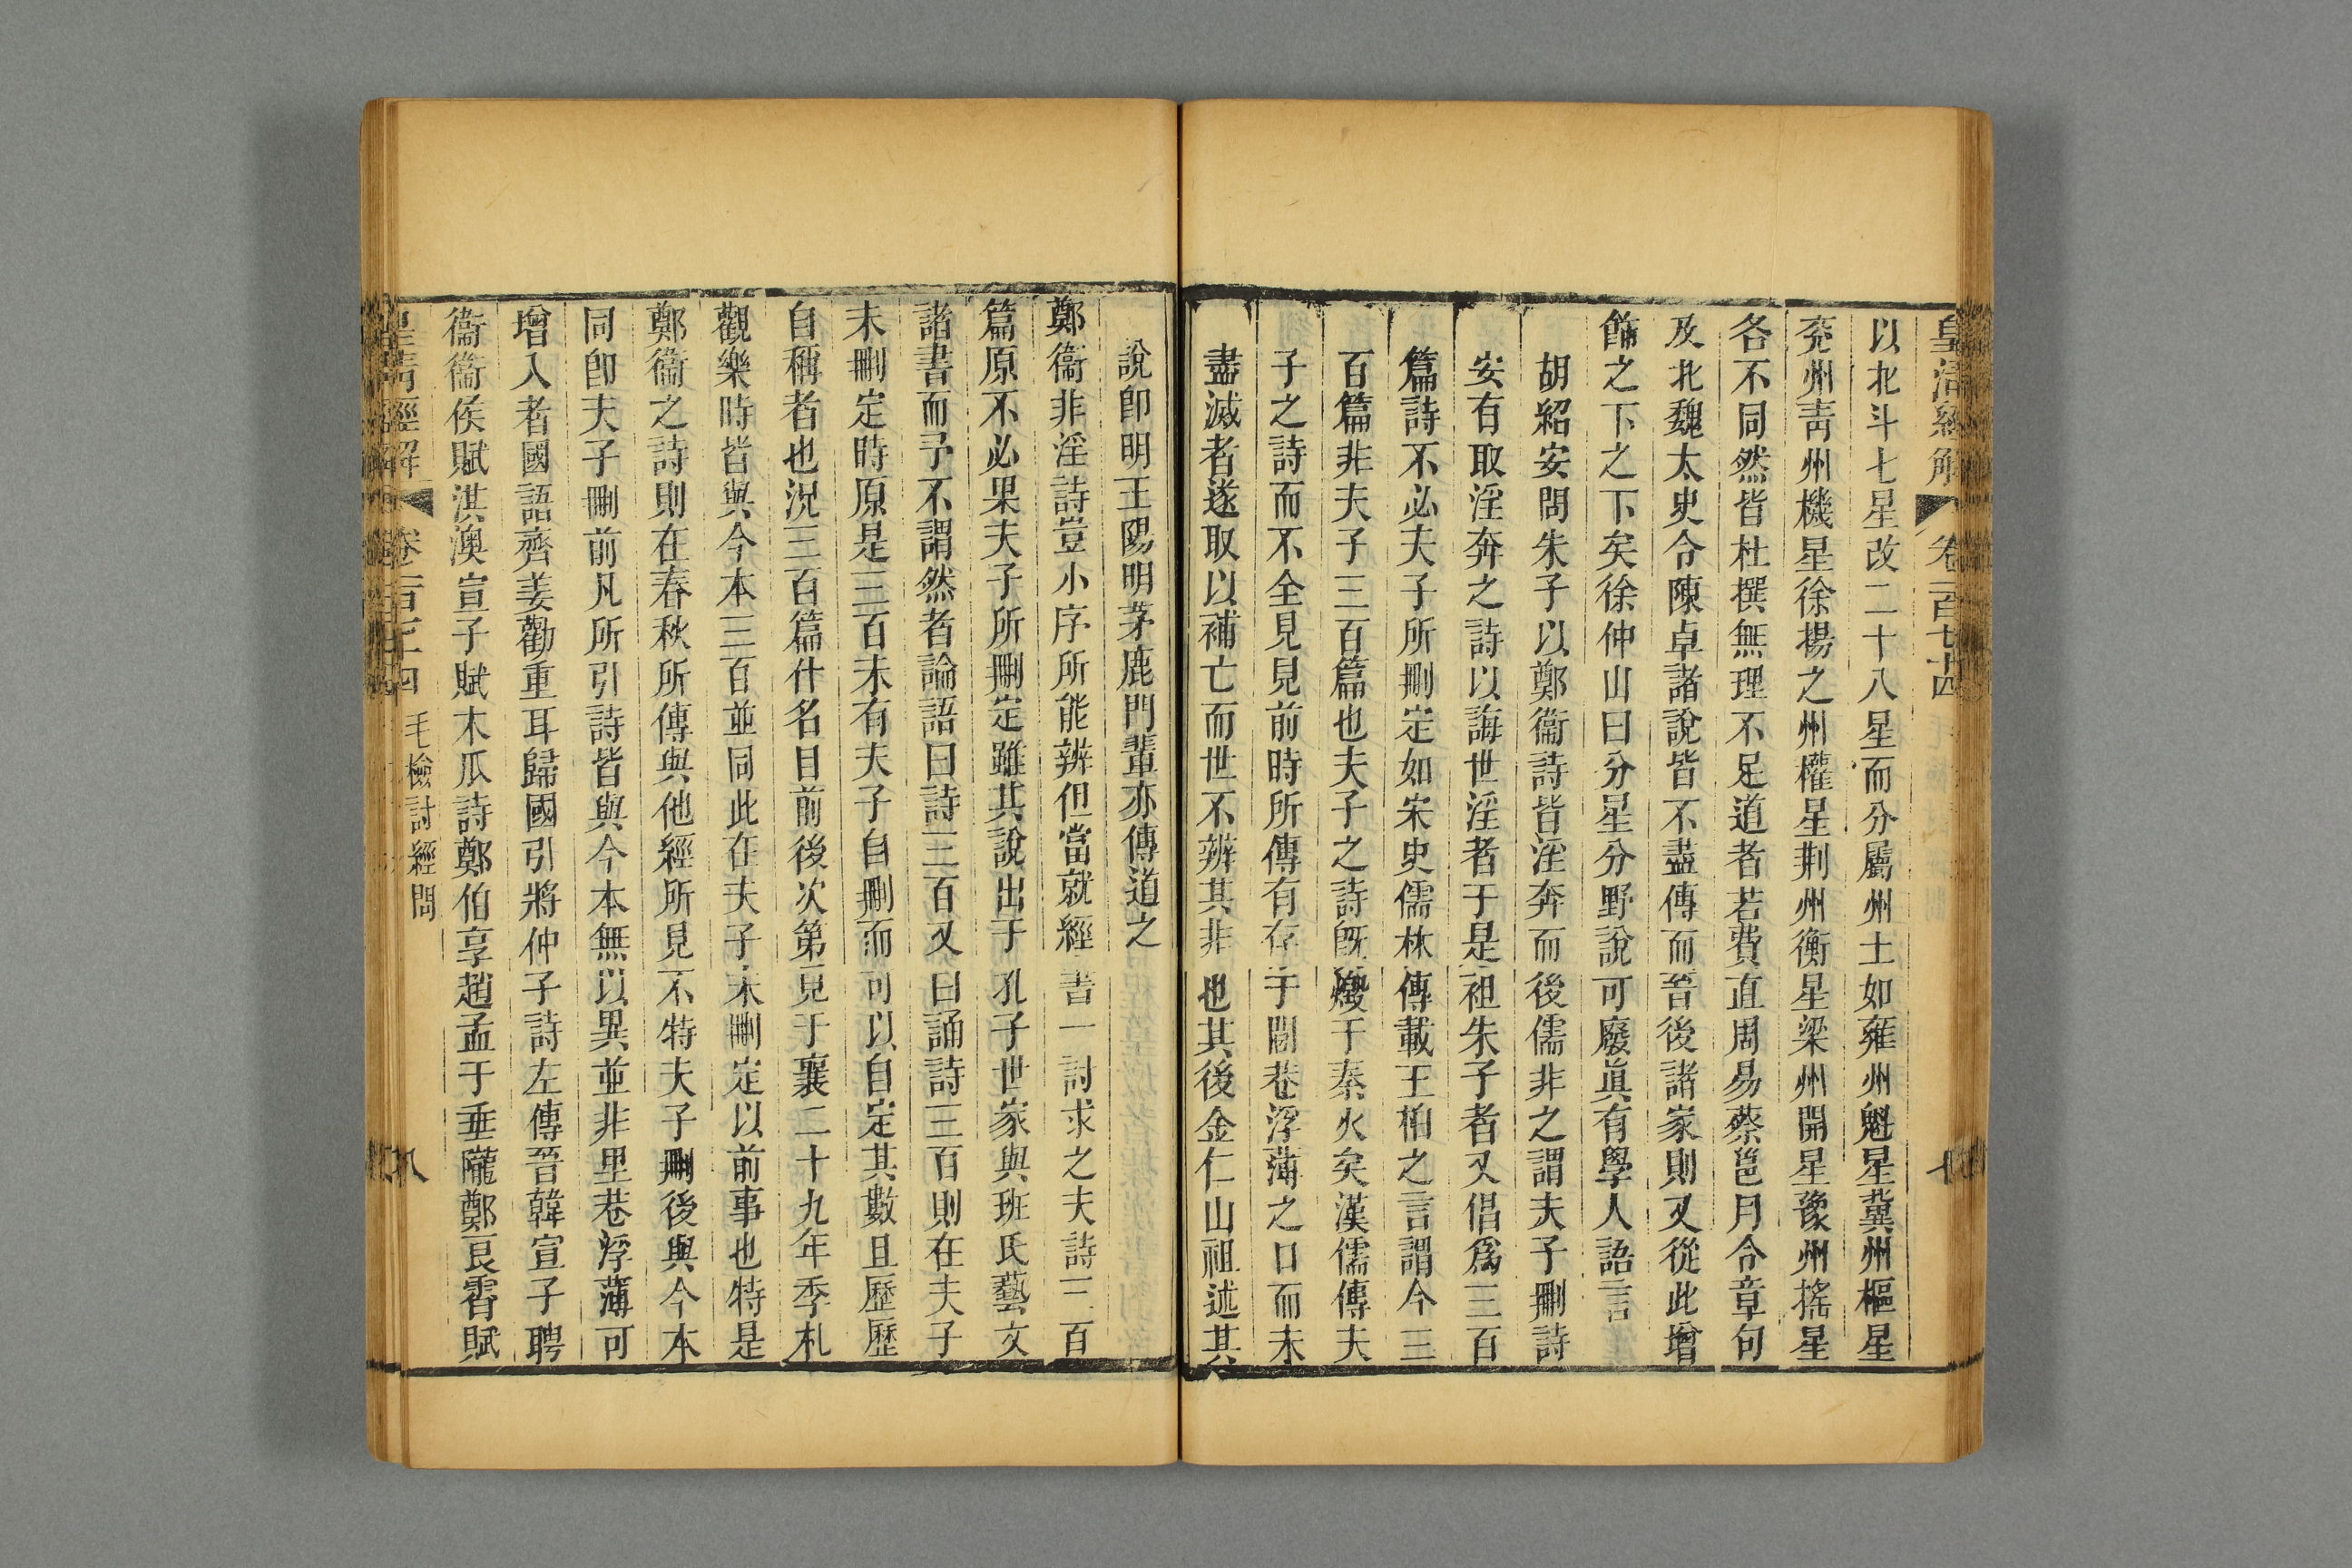 皇清經解 卷一百七十四
以北斗七星改二十八星而分屬州土如雍州魁星冀州樞星
兗州靑州機星徐揚之州權星荆州衡星梁州開星豫州搖星
各不同然皆杜撰無理不足道者若費直周易蔡邕月令章句
及北魏太史令陳卓諸說皆不盡傳而晉後諸家則又從此增
飾之下之下矣徐仲山曰分星分野說可廢眞有學人語言
胡紹安問朱子以鄭衞詩皆淫奔而後儒非之謂夫子刪詩
安有取淫奔之詩以誨世淫者于是祖朱子者又倡爲三百
篇詩不必夫子所刪定如宋史儒林傳載王柏之言謂今三
百篇非夫子三百篇也夫子之詩旣燬于秦火矣漢儒傳夫
子之詩而不全見見前時所傳有存于閭巷浮薄之口而未
盡滅者遂取以補亡而世不辨其非也其後金仁山祖述其
說卽明王陽明茅鹿門輩亦傳道之
鄭衞非淫詩豈小序所能辨但當就經書一討求之夫詩三百
篇原不必果夫子所刪定雖其說出于孔子世家與班氏藝文
諸書而予不謂然者論語曰詩三百又曰誦詩三百則在夫子
未刪定時原是三百未有夫子自刪而可以自定其數且歷歷
自稱者也況三百篇什名目前後次第見于襄二十九年季札
觀樂時皆與今本三百並同此在夫子未刪定以前事也特是
鄭衞之詩則在春秋所傳與他經所見不特夫子刪後與今本
同卽夫子刪前凡所引詩皆與今本無以異並非里巷浮薄可
增入者國語齊姜勸重耳歸國引將仲子詩左傳晉韓宣子聘
衞衞侯賦淇澳宣子賦木瓜詩鄭伯享趙孟于垂隴鄭良霄賦
皇淸經解 卷一百七十四 毛檢討經問 八